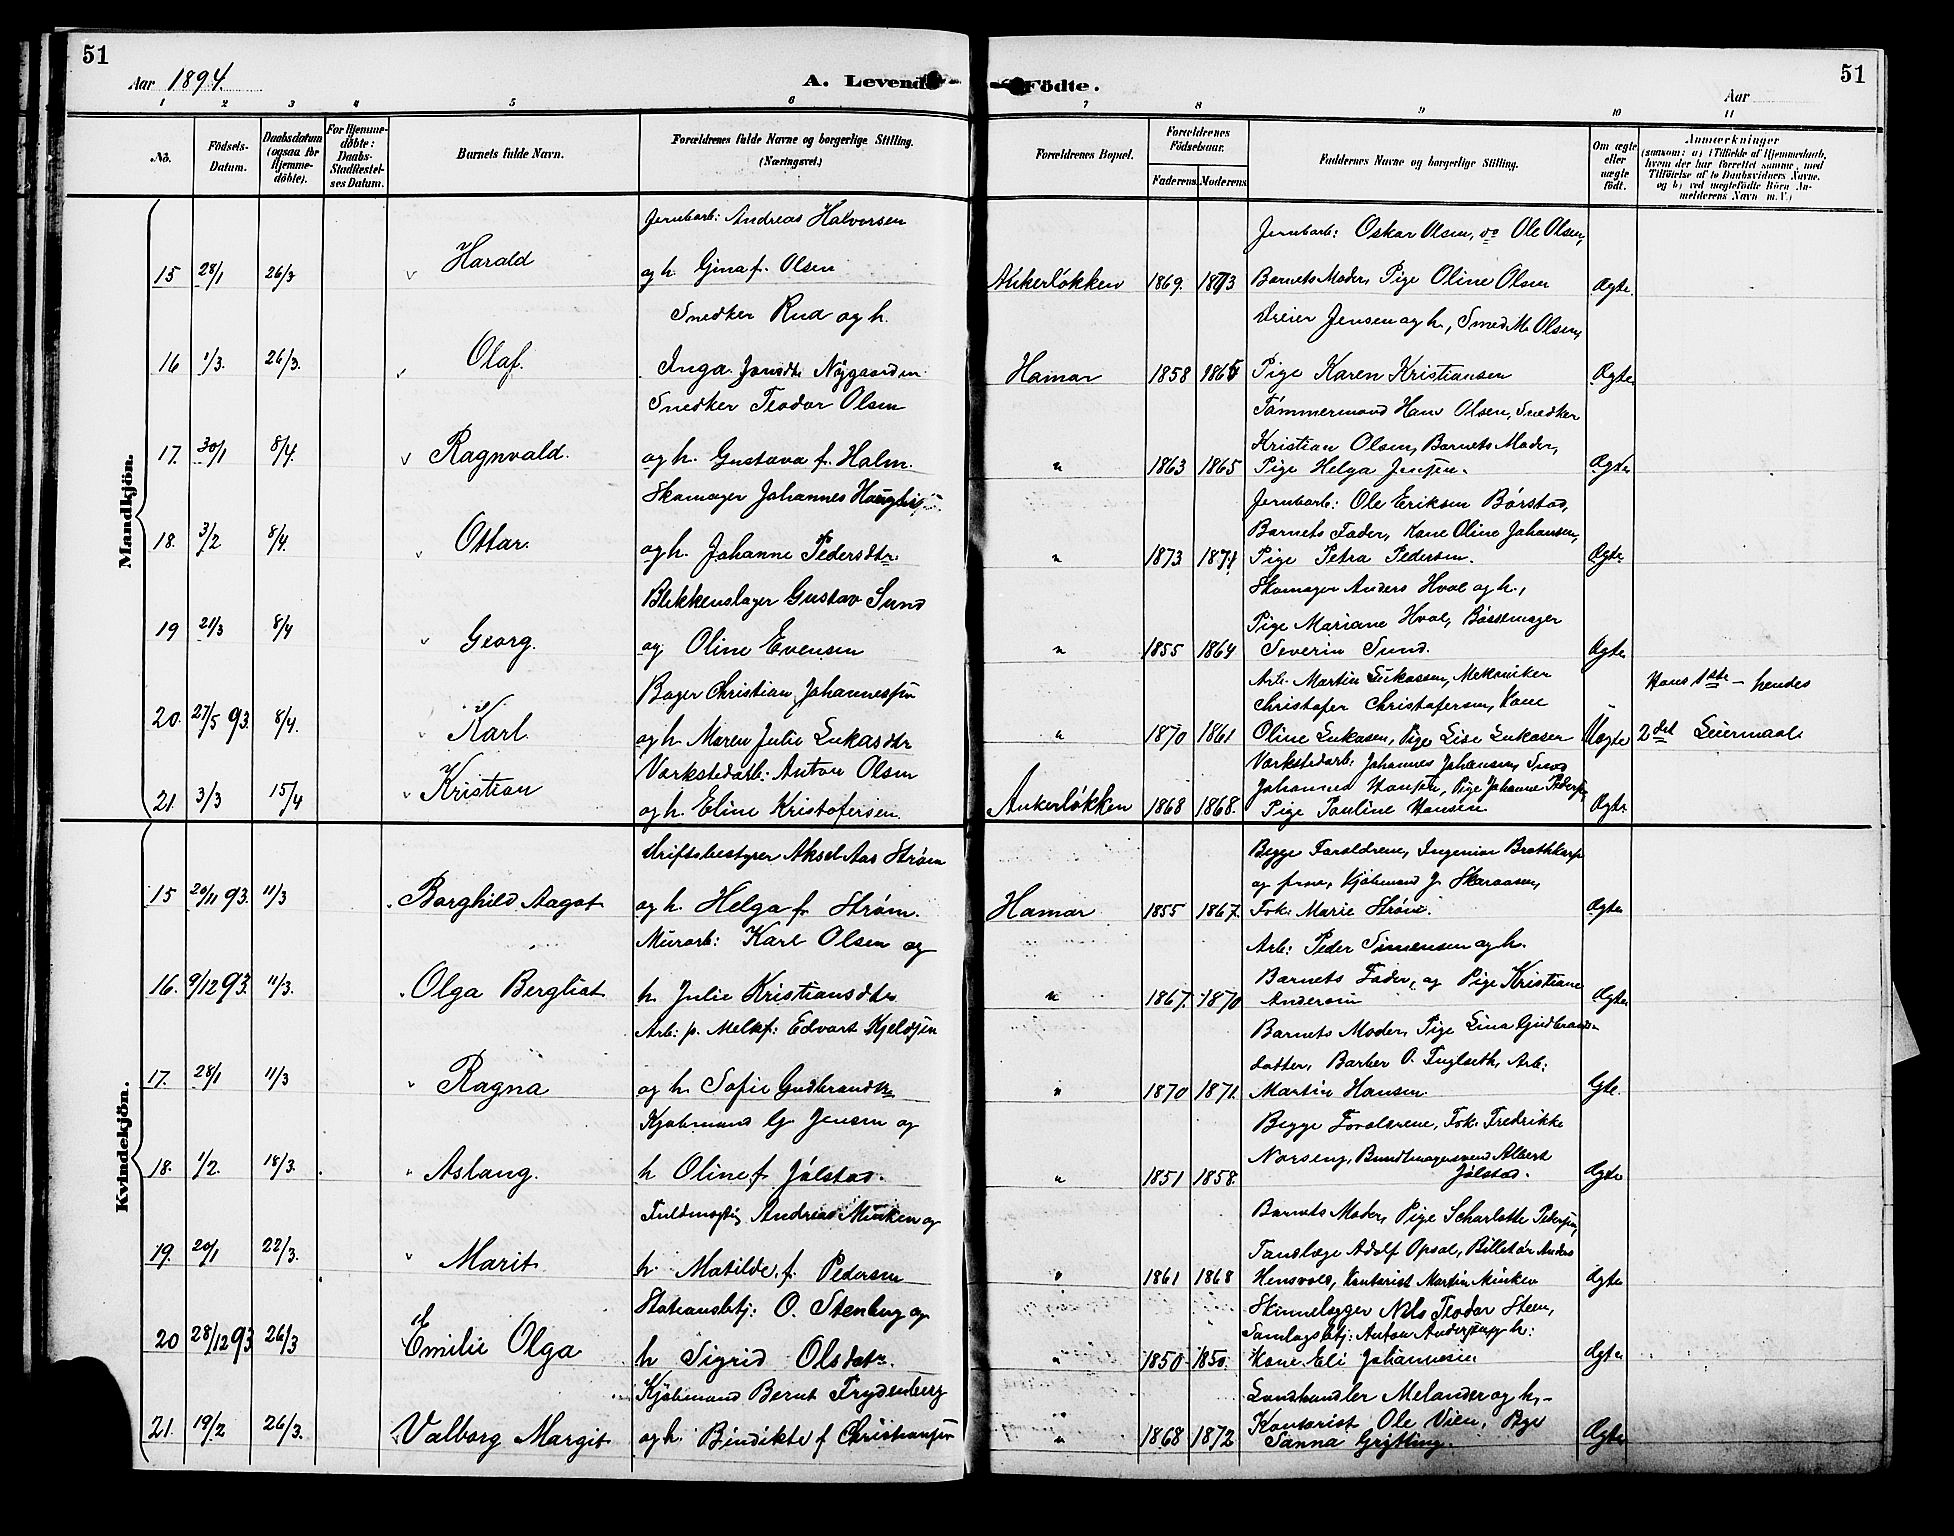 51
Aar 1894.
A. Levende
1 2 3 4 5 6
No.
Födsels-Datum.
Daabsdatum (ogsaa for Hjemme-döbte).
For Hjemme-döbte: Daabs-Stadfestel-ses Datum.
Barnets fulde Navn.
Forældrenes fulde Navne og borgerlige Stilling. (Næringsvei.)
Födte.
51
Aar
7 8 9 10 11
Forældrenes Bopæl.
Forældrenes Födselsaar.
Faderens Moderens
Faddernes Navne og borgerlige Stilling.
Om ægte eller uægte født.
Anmærkninger
(saasom: a) i Tilfælde af Hjemmedaab, hvem der har forrettet samme, med Tilföielse af to Daabsvidners Navne. og b) ved uægtefödte Börn An-melderens Navn m. V.)
Mandkjön.
Jernbarb: Andreas Halvorsen
15 28/1 26/3 Harald og h. Gina f. Olsen
Ankerløkken 1869. 1873
Jernbarb: Oskar Olsen, do Ole Olsen,
Barnets Moder, Pige Oline Olsen Ægte.
Snedker Rud og h.
16 1/3. 26/3. Olaf. Inga Jonsdtr Nygaarden
Hamar 1858 1865
Dreier Jensen og h., Smed M. Olsen,
Pige Karen Kristiansen Ægte
Snedker Teodor Olsen
17. 30/1 8/4. Ragnvald. og h. Gustava f. Holm.
" 1863 1865
Tømmermand Hans Olsen, Snedker
Kristian Olsen, Barnets Moder,
Pige Helga Jensen. Ægte
Skomager Johannes
18. 3/2 8/4. Ottar. og h. Johanne Pedersdtr
" 1873 1871
Jernbarb: Ole Eriksen Børstad,
Barnets Fader, Kone Oline Johansen,
Pige Petra Pedersen. Ægte
Blikkenslager Gustav Sund
19 21/3 8/4 Georg. og Oline Evensen
" 1855 1864
Skomager Anders Hval og h.,
Pige Mariane Hval, Bøssemager
Severin Sund. Ægte
Bager Christian Johannessen
20. 27/5 93. 8/4. Karl og h. Maren Julie Lukasdtr
" 1870 1861
Arb. Martin Lukassen, Mekaniker
Christofer Christofersen, Kone
Oline Lukasen, Pige Lise Lukasen Uægte
Hans 1ste – hendes
2det Leiermaal
Værkstedarb: Anton Olsen
21. 3/3 15/4 Kristian og h. Eline Kristofersen.
Ankerløkken 1868 1868.
Værkstedarb. Johannes Johansen, Smed
Johannes Hansen, Pige Johanne Pedersen
Pige Pauline Hansen Ægte
Kvindekjön.
Driftsbestyrer Aksel Aas Strøm
15 20/11 93. 11/3 Borghild Aagot og h. Helga f. Strøm.
Hamar 1855 1867.
Begge Forældrene, Ingeniør
og frue, Kjøbmand J. Skaraasen,
Frk. Marie Strøm. Ægte
Murarb: Karl Olsen og
16. 9/12 93. 11/3. Olga Bergliot h. Julie Kristiansdtr
" 1867. 1870
Arb: Peder Simensen og h.
Barnets Fader, og Pige Kristiane
Andersen Ægte
Arb: p. Melkf: Edvart Kjeldsen
17. 28/1 11/3 Ragna og h. Sofie Gudbrandsdtr
" 1870 1871.
Barnets Moder, Pige Lina Gudbrands-
datter, Barber O. Fuglseth, Arb:
Martin Hansen. Ægte.
Kjøbmand G. Jensen og
18. 1/2. 18/3. Aslaug. h Oline f. Jølstad.
" 1851 1858.
Begge Forældrene, Frk. Fredrikke
Norseng, Bundtmagersvend Albert
Jølstad. Ægte
Fuldmægtig Andreas Minken og
19. 20/1 22/3. Marit h. Matilde f. Pedersen
" 1861 1868
Barnets Moder, Pige Scharlotte Petersen,
Tandlæge Adolf Opsal, Billetør Anders
Hensvold, Kontorist Martin Minken Ægte
Stationsbetj: O. Stenberg og
20 28/12 93 26/3 Emilie Olga h Sigrid Olsdatr
" 1850 1850.
Skinnelægger Nils Teodor Steen,
Samlagsbetj: Anton Andersen og h:
Kone Eli Johannesen Ægte
Kjøbmand Bernt Frydenberg
21. 19/2 26/3. Valborg Margit og h. Bindikte f Christiansen
" 1868 1872
Landhandler Melander og h,
Kontorist Ole Vien, Pige
Sanna Grytting. Ægte